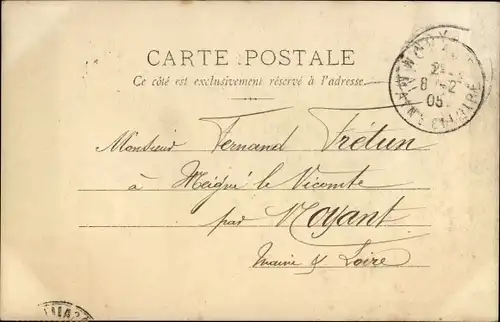 CARTE POSTALE
Ce côté est exclusivement réservé à l'adresse.
Monsieur Fernand Frétun
à Meigné le Vicomte
par Noyant
Maine & Loire
8 -2
05